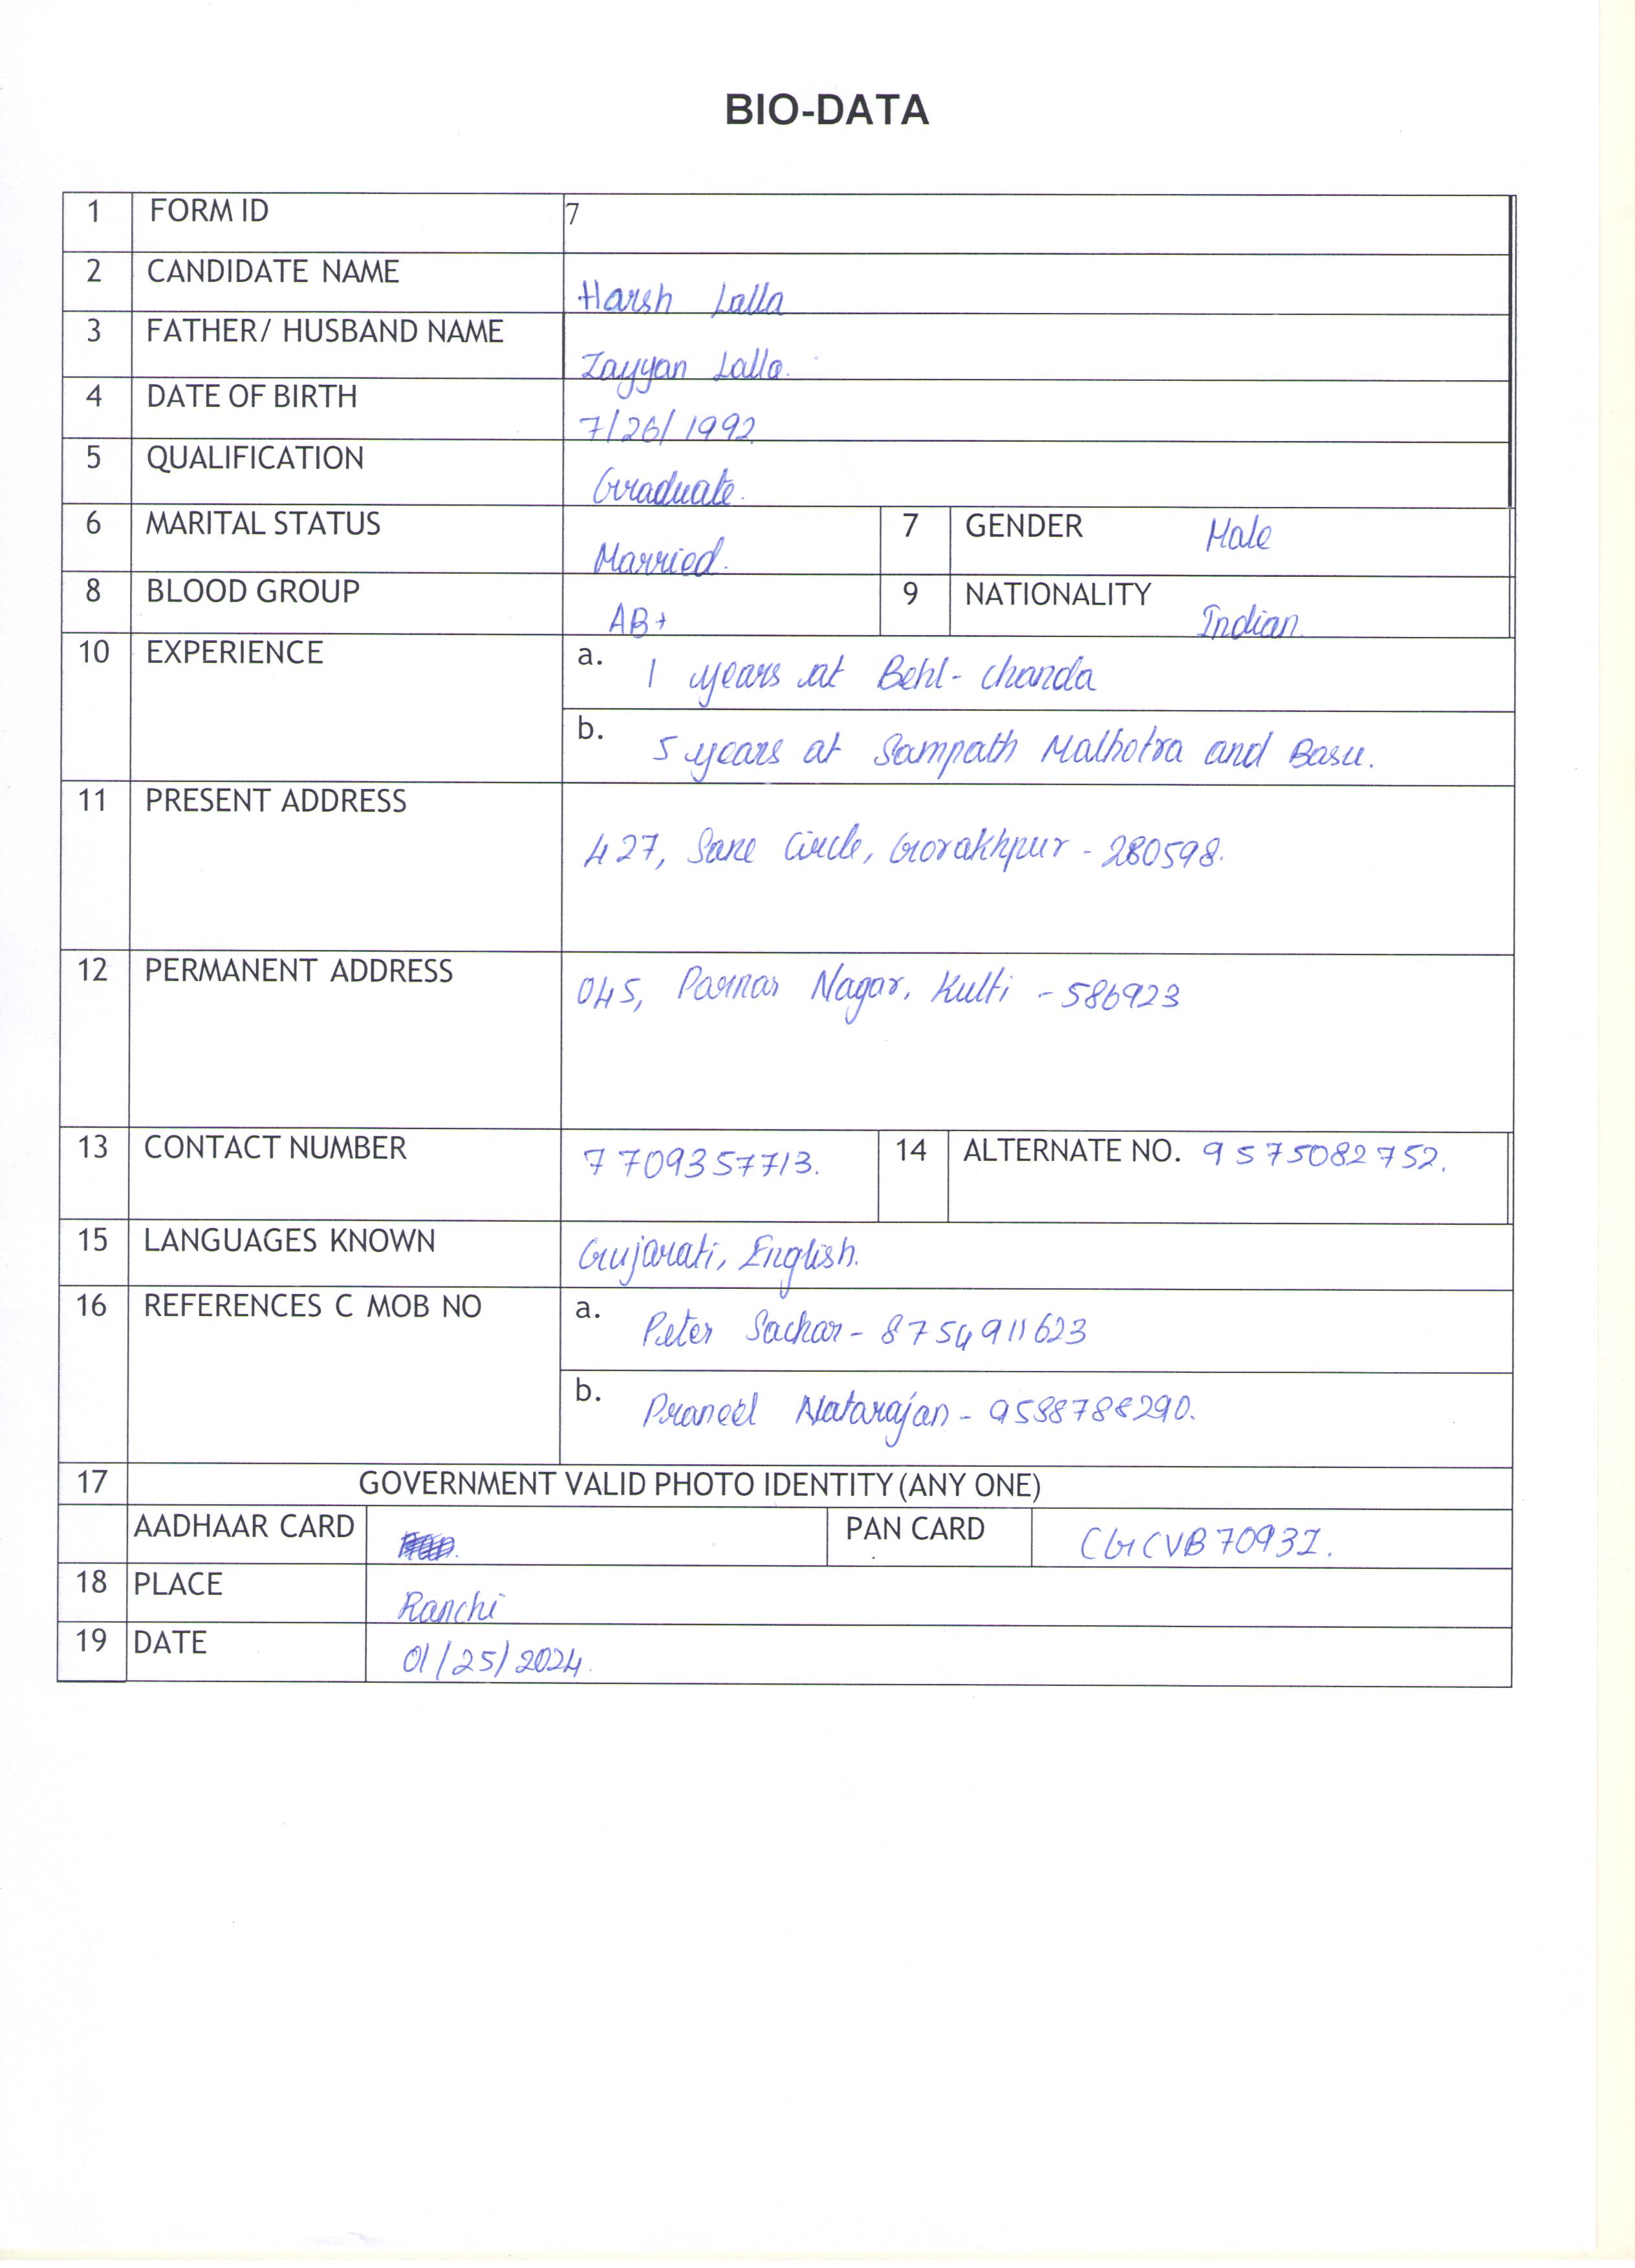 BIO-DATA
1 FORM ID 7
2 CANDIDATE NAME Harsh Lalla
3 FATHER/ HUSBAND NAME Zayyan Lalla.
4 DATE OF BIRTH 7/26/1992
5 QUALIFICATION Graduate.
6 MARITAL STATUS Married. 7 GENDER Male
8 BLOOD GROUP AB+ 9 NATIONALITY Indian
10 EXPERIENCE a. 1 years at Behl-chanda
b. 5 years at Sampath Malhotra and Basu.
11 PRESENT ADDRESS
427, Sane Circle, Gorakhpur - 280598.
12 PERMANENT ADDRESS 045, Parmar Nagar, Kulti - 586923
13 CONTACT NUMBER 7709357713. 14 ALTERNATE NO. 9575082752.
15 LANGUAGES KNOWN Gujarati, English.
16 REFERENCES C MOB NO a. Peter Sachar - 8754911623
b. Praneel Natarajan - 9588788290.
17 GOVERNMENT VALID PHOTO IDENTITY (ANY ONE)
AADHAAR CARD PAN CARD CGCVB7093I.
18 PLACE Ranchi
19 DATE 01/25/2024.